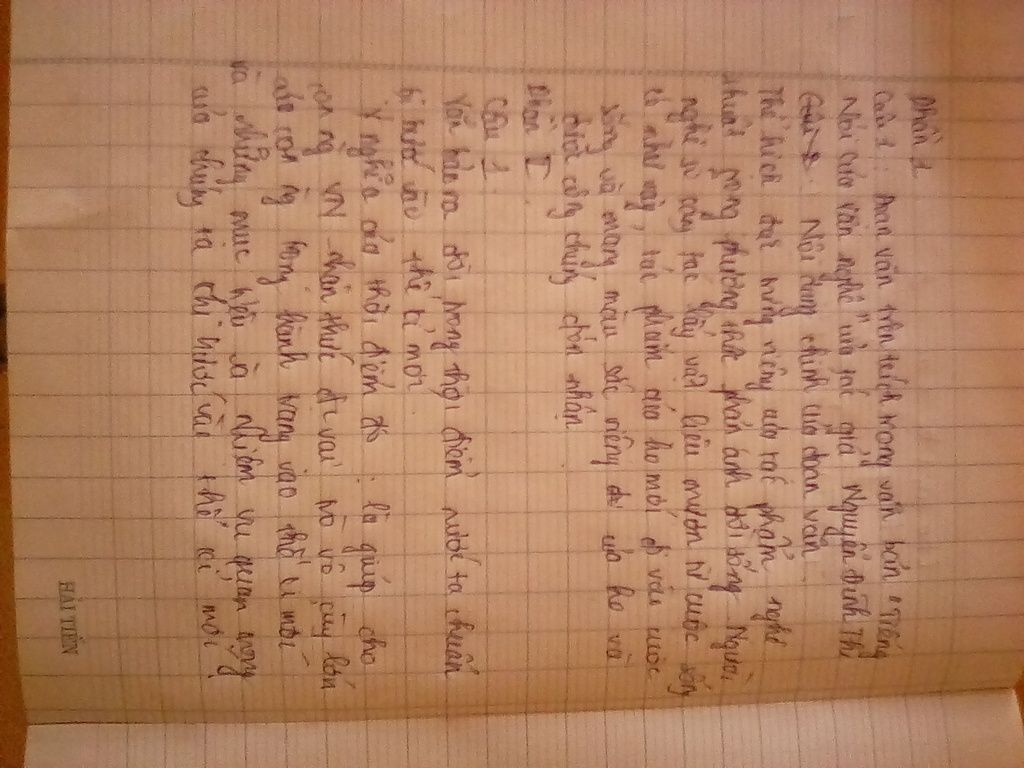 Phần 1
Câu 1: Đoạn văn trên trích trong văn bản "Tiếng
Nói của văn nghệ" của tác giả Nguyễn Đình Thi
Nội dung chính của đoạn văn
Thể hiện đặt trưng riêng của tác phẩm nghệ
thuật trong phương thức phản ánh đời sống Người
nghệ sĩ sáng tác lấy vật liệu mượn từ cuộc sống
có như vậy, tác phẩm của họ mới đi vào cuộc
sống và mang màu sắc riêng của họ và
được công chúng đón nhận
Phần I
Câu 1
Văn bản ra đời trong thời điểm nước ta chuẩn
bị bước vào thế kỉ mới
Ý nghĩa của thời điểm đó : là giúp cho
con ng VN nhận thức đc vai trò vô cùng lớn
của con ng trong hành trang vào thế kỉ mới
và những mục tiêu và nhiệm vụ quan trọng
của chúng ta khi bước vào thế kỉ mới
HẢI TIẾN